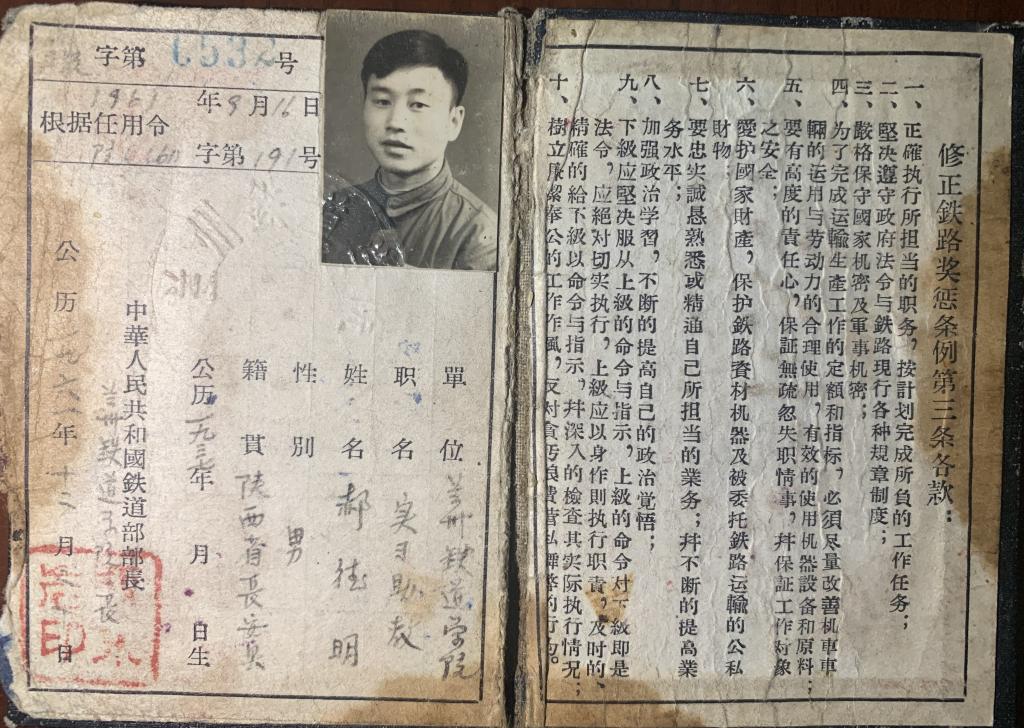 修正鉄路奖惩条例第三条各款：
一、正確执行所担当的职务，按計划完成所负的工作任务；
二、堅决遵守政府法令与鉄路現行各种規章制度；
三、嚴格保守國家机密及軍事机密；
四、为了完成运輸生產工作的定額和指标，必須尽量改善机車車
輛的运用与劳动力的合理使用，有效的使用机器設备和原料；
五、要有高度的責任心，保証無疏忽失职情事，幷保証工作对象
之安全；
六、愛护國家財產，保护鉄路資材机器及被委托鉄路运輸的公私
財物；
七、要忠实誠恳熟悉或精通自己所担当的業务；幷不断的提高業
务水平；
八、加强政治学習，不断的提高自己的政治覚悟；
九、下級应堅决服从上級的命令与指示，上級的命令对下級即是
法令，应絕对切实执行，上級应以身作則执行职責，及时的、
精確的給下級以命令与指示，幷深入的檢查其实际执行情况；
十、樹立廉潔奉公的工作作風，反对貪污浪費营私舞弊的行为。
字第 0532号
1961年9月16日
根据任用令
字第191号
單位 兰州鉄道学院
职名 实习助教
姓名 郝德明
性別 男
籍貫 陕西省長安县
公历一九三 年 月 日生
中華人民共和國鉄道部部長
兰州鉄道学院院長
公历一九六一年十二月 日